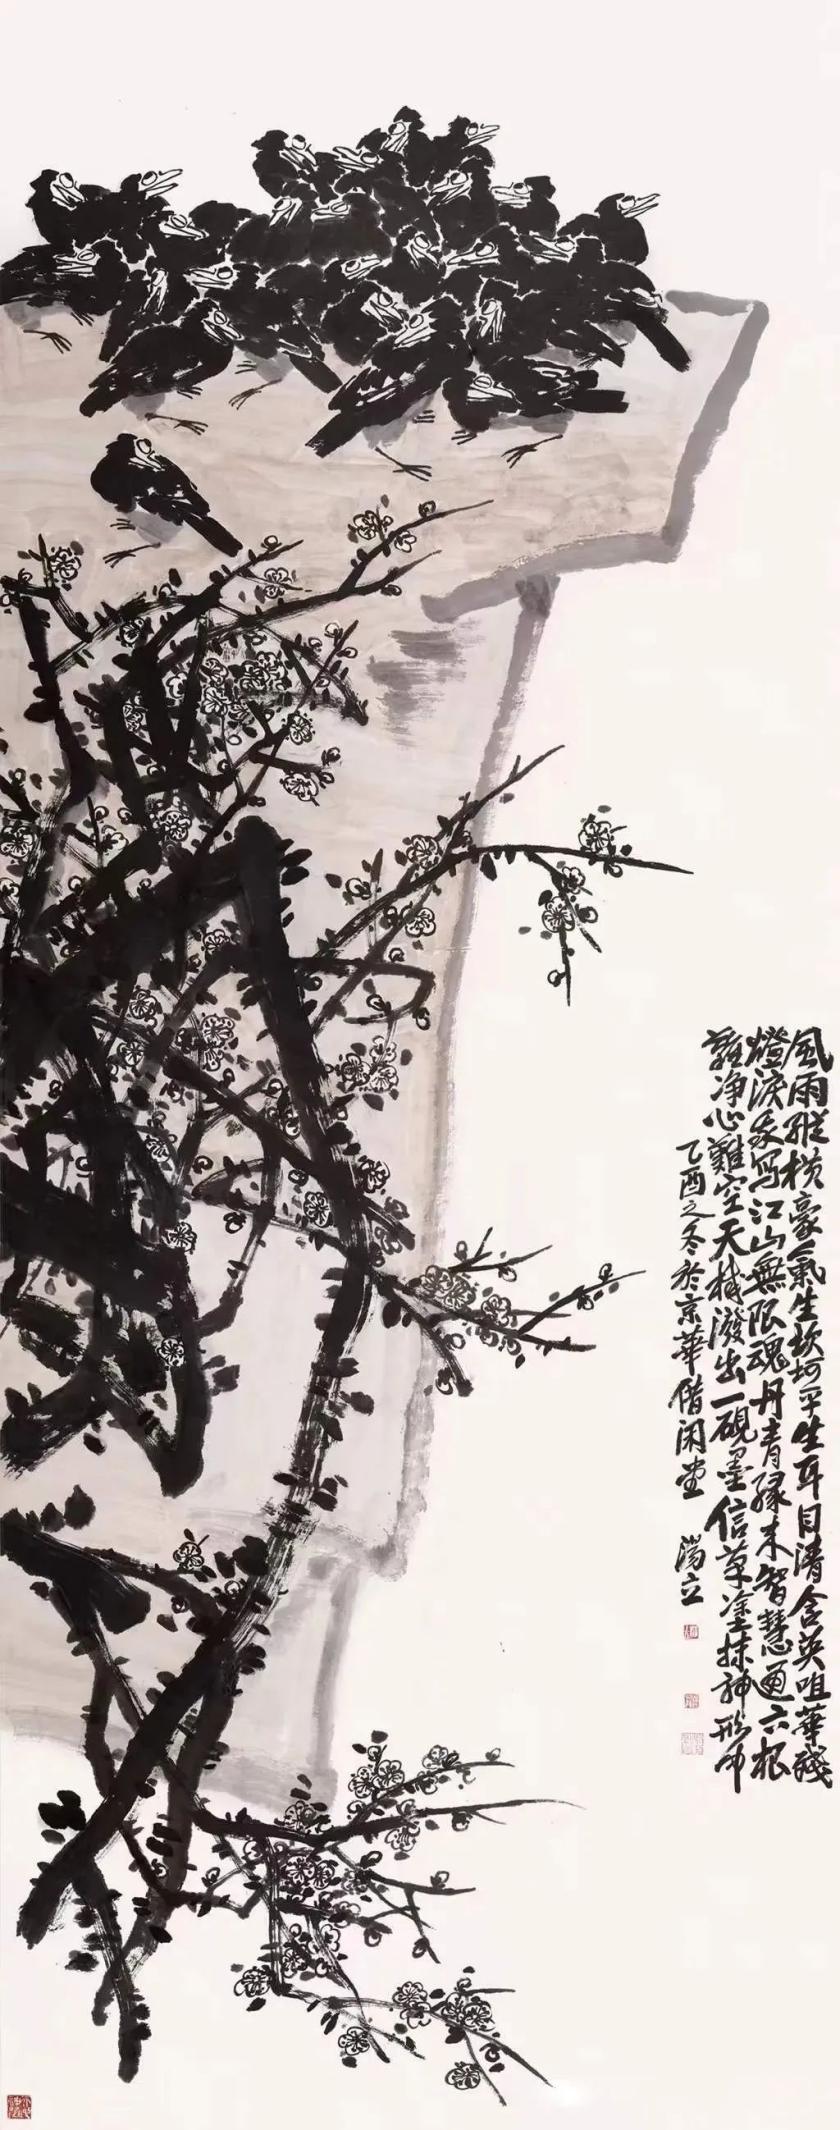 風雨縱橫豪氣生坎坷平生耳目清含英咀華殘
燈淚水寫江山無限魂丹青緣來智慧通六根
難净心難空天機潑出一硯墨信筆塗抹神形中
乙酉之冬於京華借闲堂 湯立